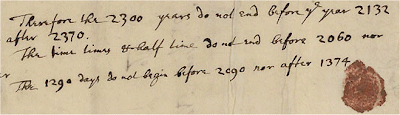 Therefore the 2300 years do not end before ye year 2132
after 2370.
The time times & half time do not end before 2060 nor
The 1290 days do not begin before 2090 nor after 1374